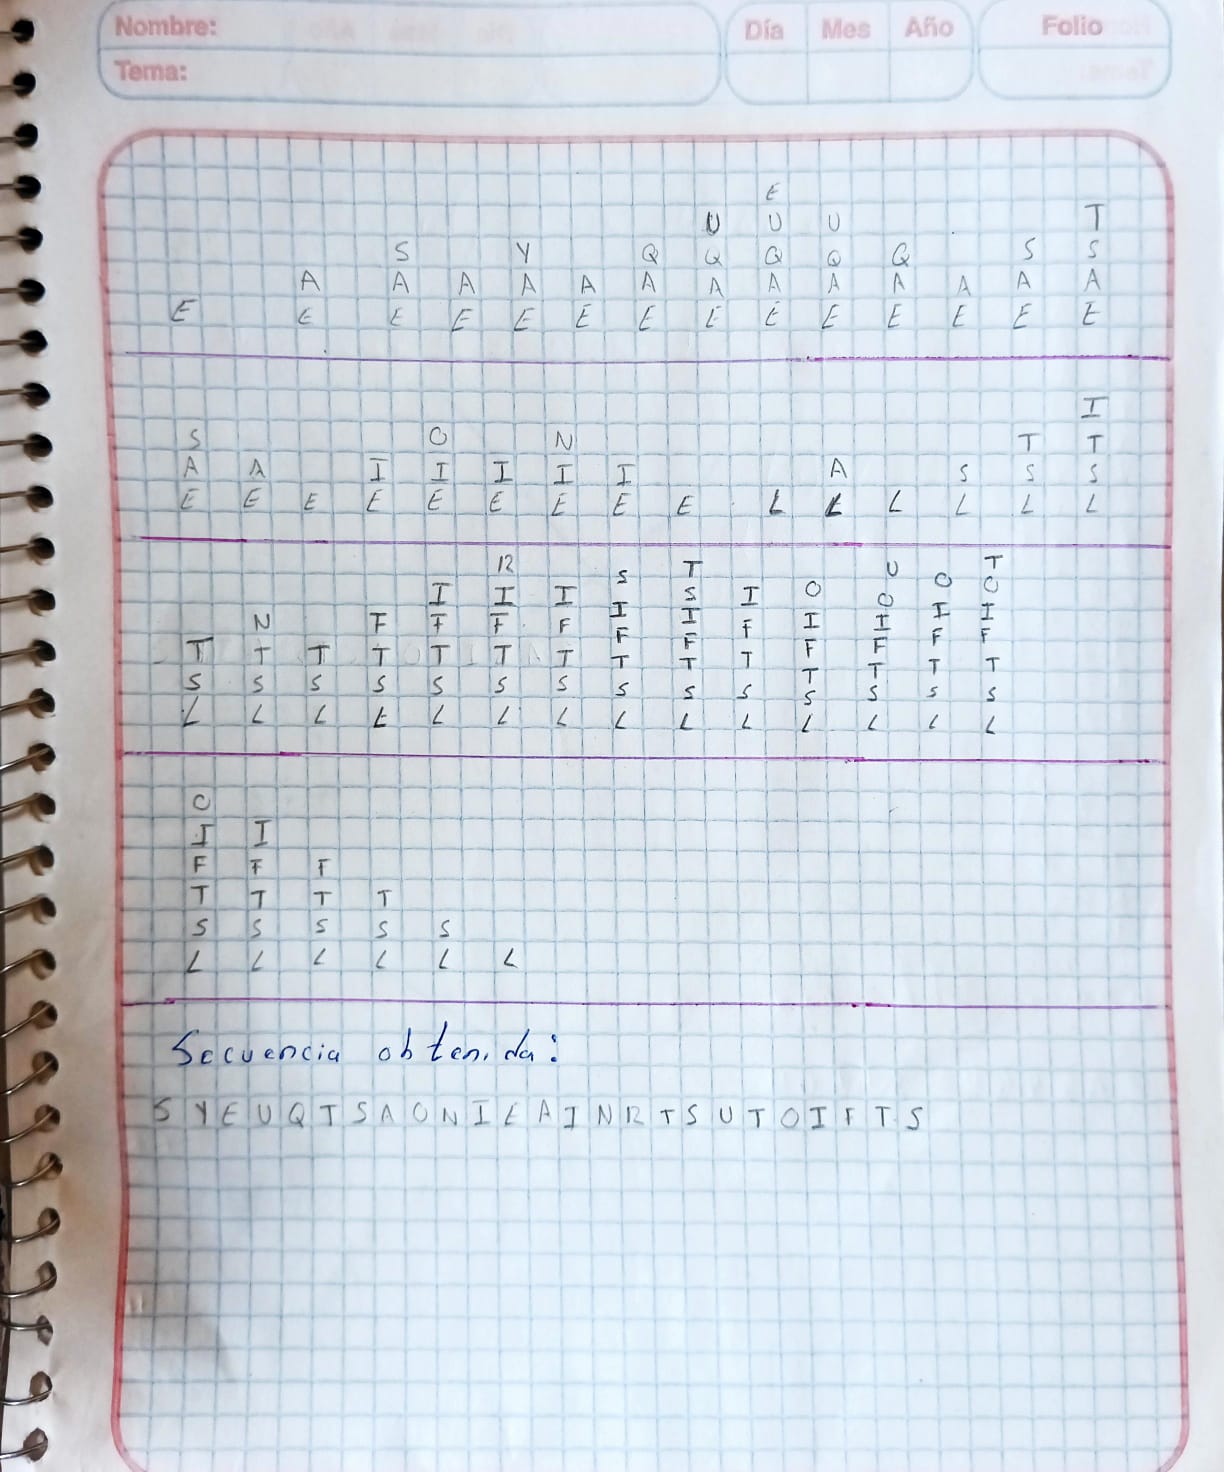 Nombre: Día Mes Año Folio
Tema:
E
U U U T
S Y Q Q Q Q Q S S
A A A A A A A A A A A A A
E E E E E E E E E E E E E E
I
S O N T T
A A I I I I I A S S S
E E E E E E E E E L L L L L L
T U T
R S S O O O O
I I I I I I I I I I
N F F F F F F F F F F F
T T T T T T T T T T T T T T
S S S S S S S S S S S S S S
L L L L L L L L L L L L L L
O
I I
F F F
T T T T
S S S S S
L L L L L L
Secuencia obtenida:
S Y E U Q T S A O N I E A I N R T S U T O I F T S